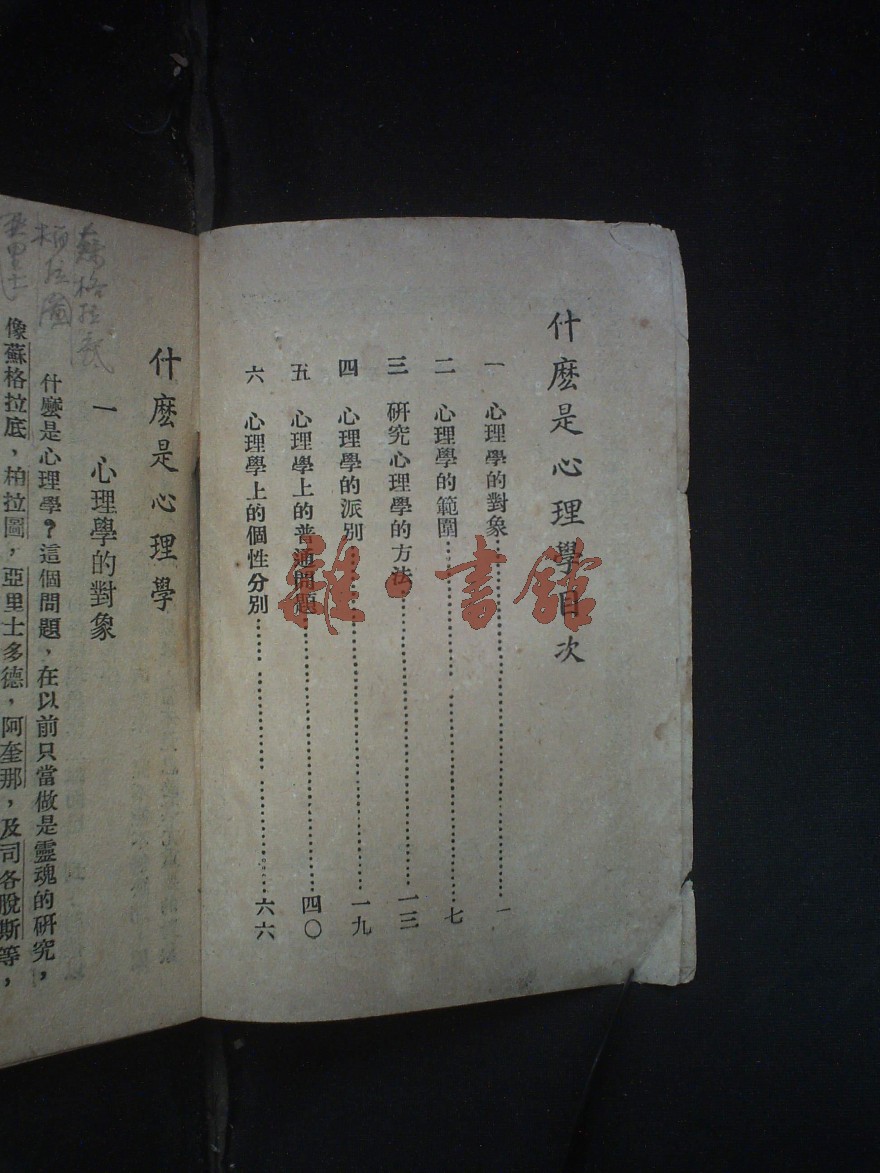 什麽是心理學目次
一　心理學的對象……一
二　心理學的範圍……七
三　研究心理學的方法……一三
四　心理學的派別……一九
五　心理學上的普通問題……四〇
六　心理學上的個性分別……六六
雜·書館
什麽是心理學
一　心理學的對象
什麽是心理學？這個問題，在以前只當做是靈魂的研究，
像蘇格拉底，柏拉圖，亞里士多德，阿奎那，及司各脫斯等，
蘇格拉底
柏拉圖
亞里士